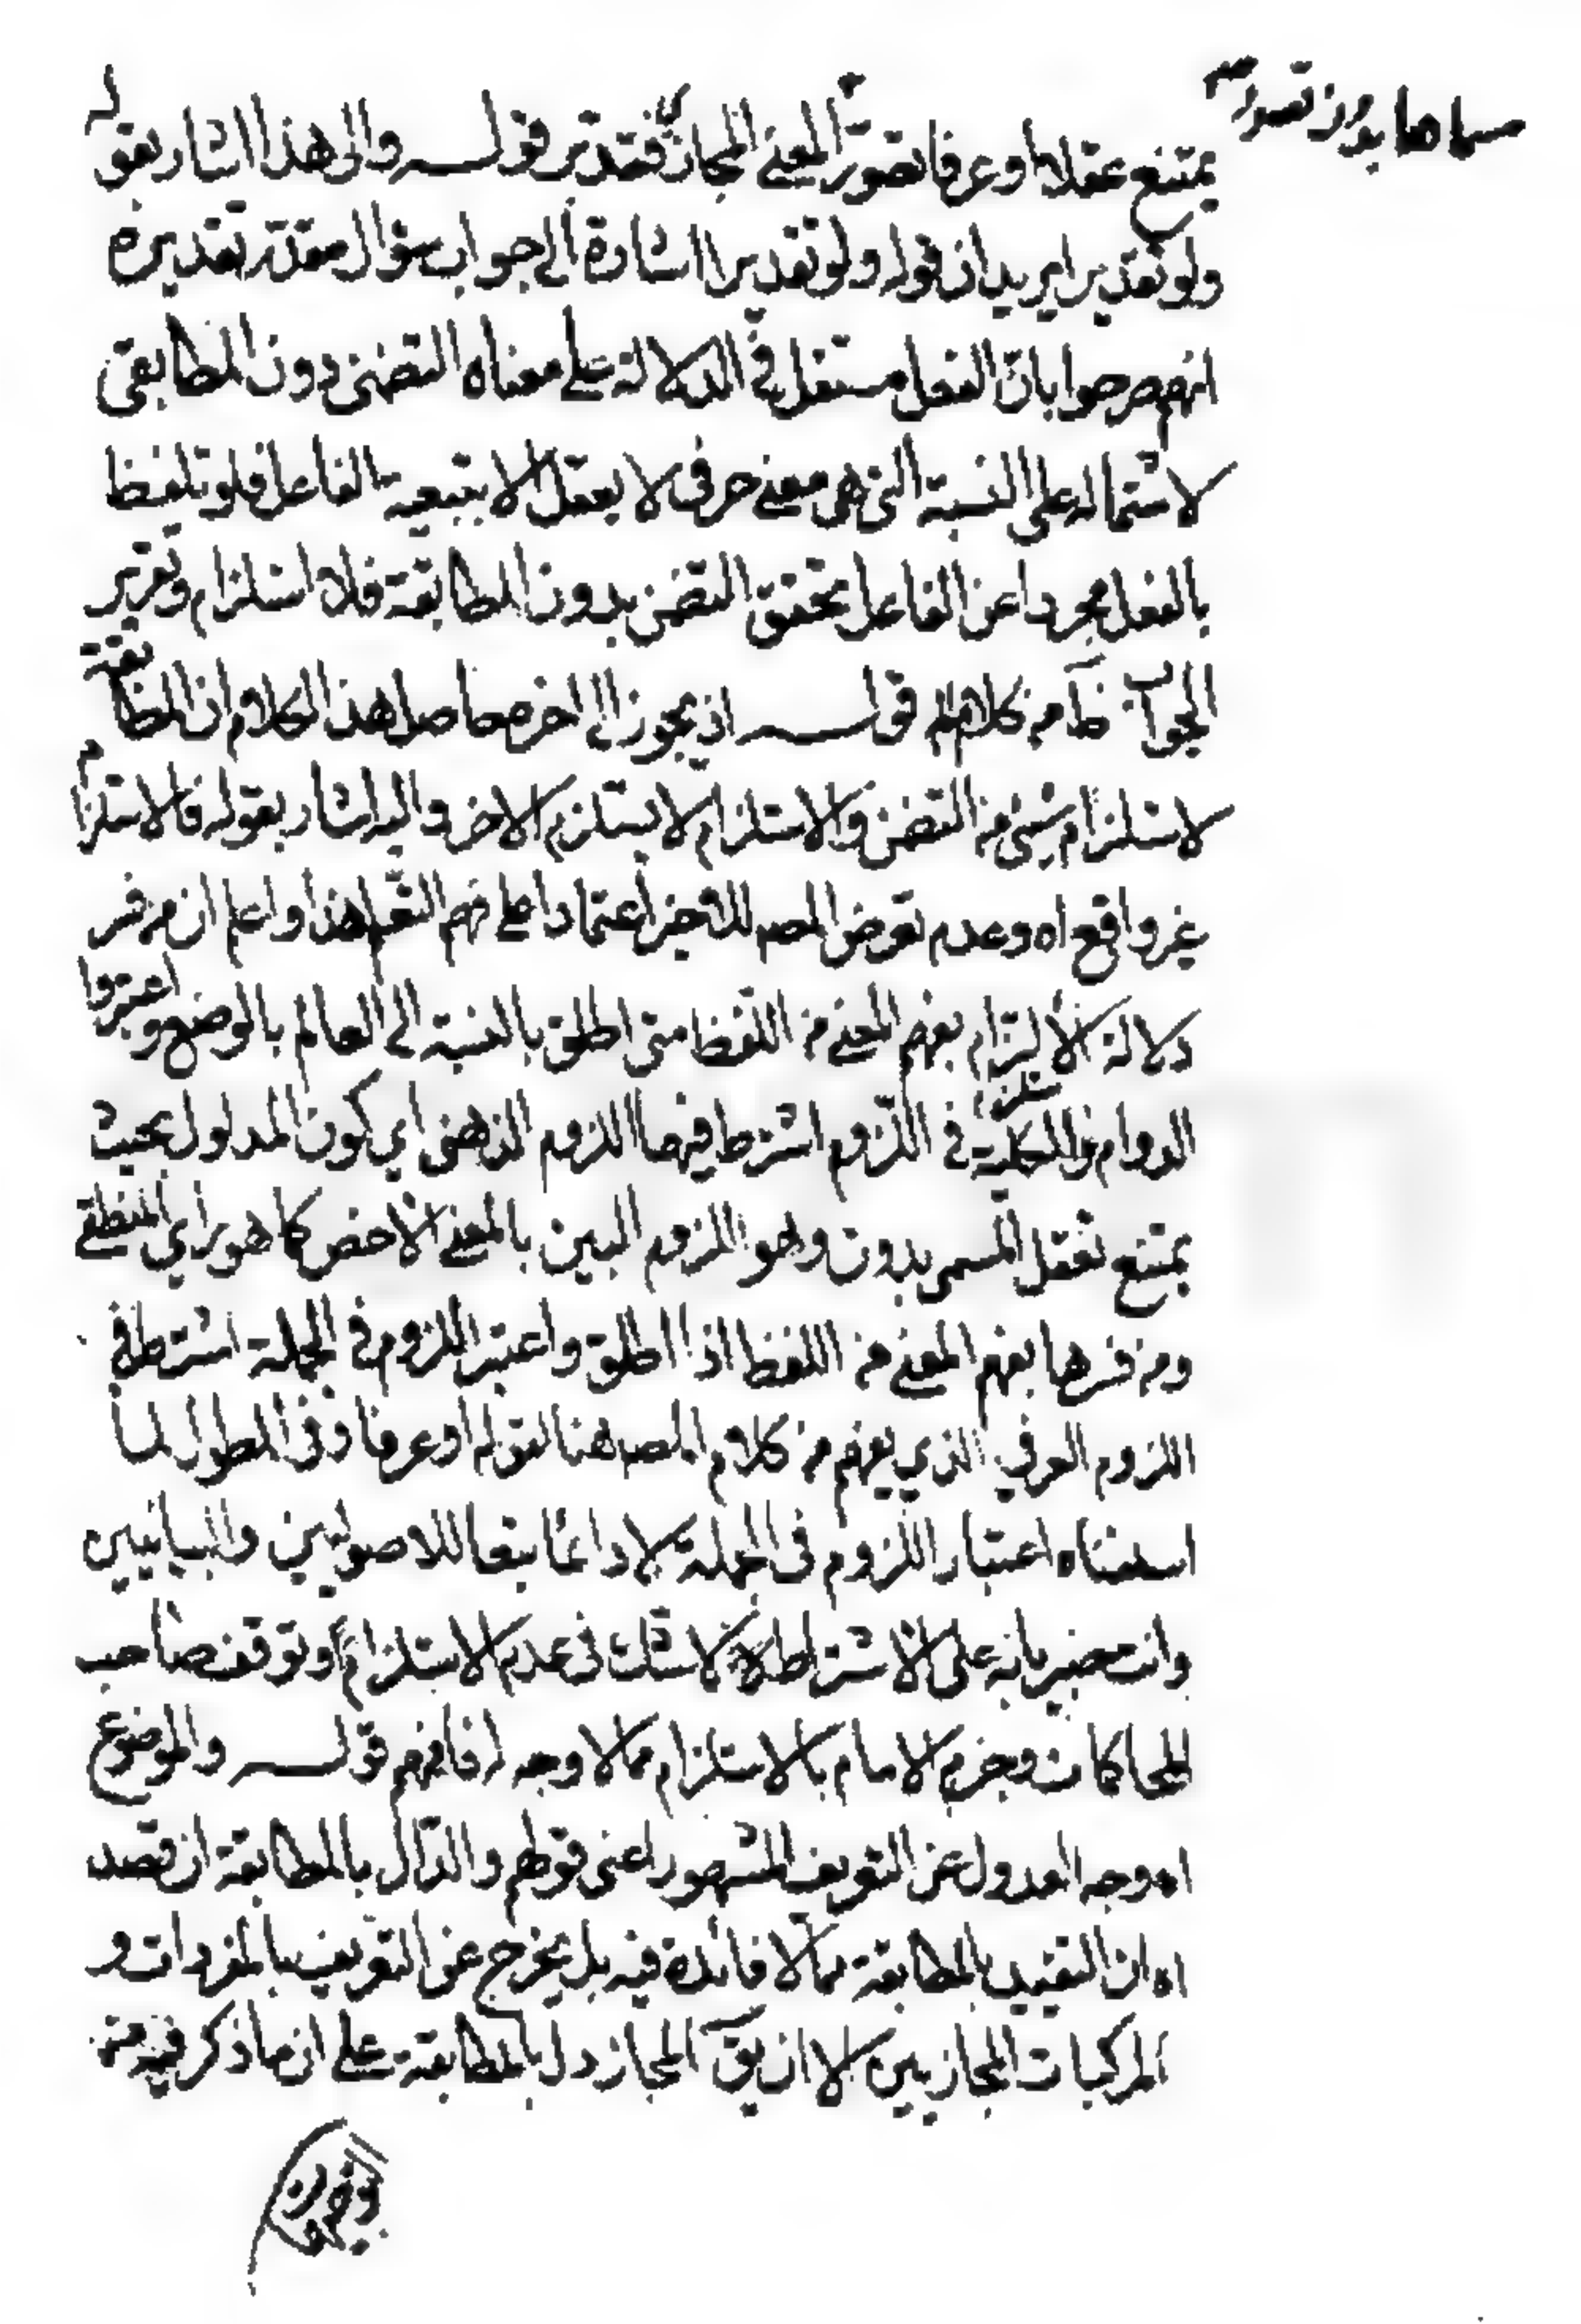 يمتنع عقلا او عرفا تصور المعنى المجازي فتدبر قوله والى هذا اشار بقوله
ولو تقديرا يريد ان قوله ولو تقديرا اشارة الى جواب سؤال مقدر تقديره
انهم صرحوا بان الفعل مستقل في الدلالة على معناه التضمنى دون المطابقى
لاشتماله على النسبة التى هى معنى حرفى لا يعقل الا بتبعية الفاعل فلو تلفظ
بالفعل مجردا عن الفاعل تحقق التضمن بدون المطابقة فلا استلزام وتقرير
الجواب ظ من كلامه قوله اذ يجوز الى اخره حاصل هذا الكلام ان المطابقة
لا تستلزم شئ من التضمن والاستلزام لا يستلزم الاخر واليه اشار بقوله فالاستلزام
غير واقع اه وعدم تعرض المصـ للاخير اعتمادا على فهم المتعلم هذا واعلم ان من فسر
دلالة الالتزام بفهم المعنى من اللفظ متى اطلق بالنسبة الى العالم بالوضع واعتبروا
الدوام والكلية فى اللزوم اشترط فيها اللزوم الذهنى اي كون المدلول بحيث
يمتنع تعقل المسمى بدونه وهو اللزوم البين بالمعنى الاخص كما هو راي المنطقى
ومن فسرها بفهم المعنى من اللفظ اذا اطلق واعتبر اللزوم فى الجملة اشترط فى
اللزوم العرفي الذي يفهم من كلام المصـ هنا لقوله او عرفا وفى المطول لما
اسلفناه اعتبار اللزوم فى الجملة لا دائما تبعا للاصوليين والبيانيين
وانت خبير بانه على الاشتراط لا شك فى عدم الاستلزام وتوقف صاحب
المحاكمات وجزم الامام بالاستلزام مما لا وجه له فافهم قوله والموضوع
اه وجه العدول عن التعريف المشهور اعنى قولهم والدال بالمطابقة ان قصد
اه ان التقييد بالمطابقة مما لا فائدة فيه بل يخرج عن التعريف بالمفردات و
المركبات المجازيين الا ان يق المجاز دال بالمطابقة على ان ما ذكر فيه من